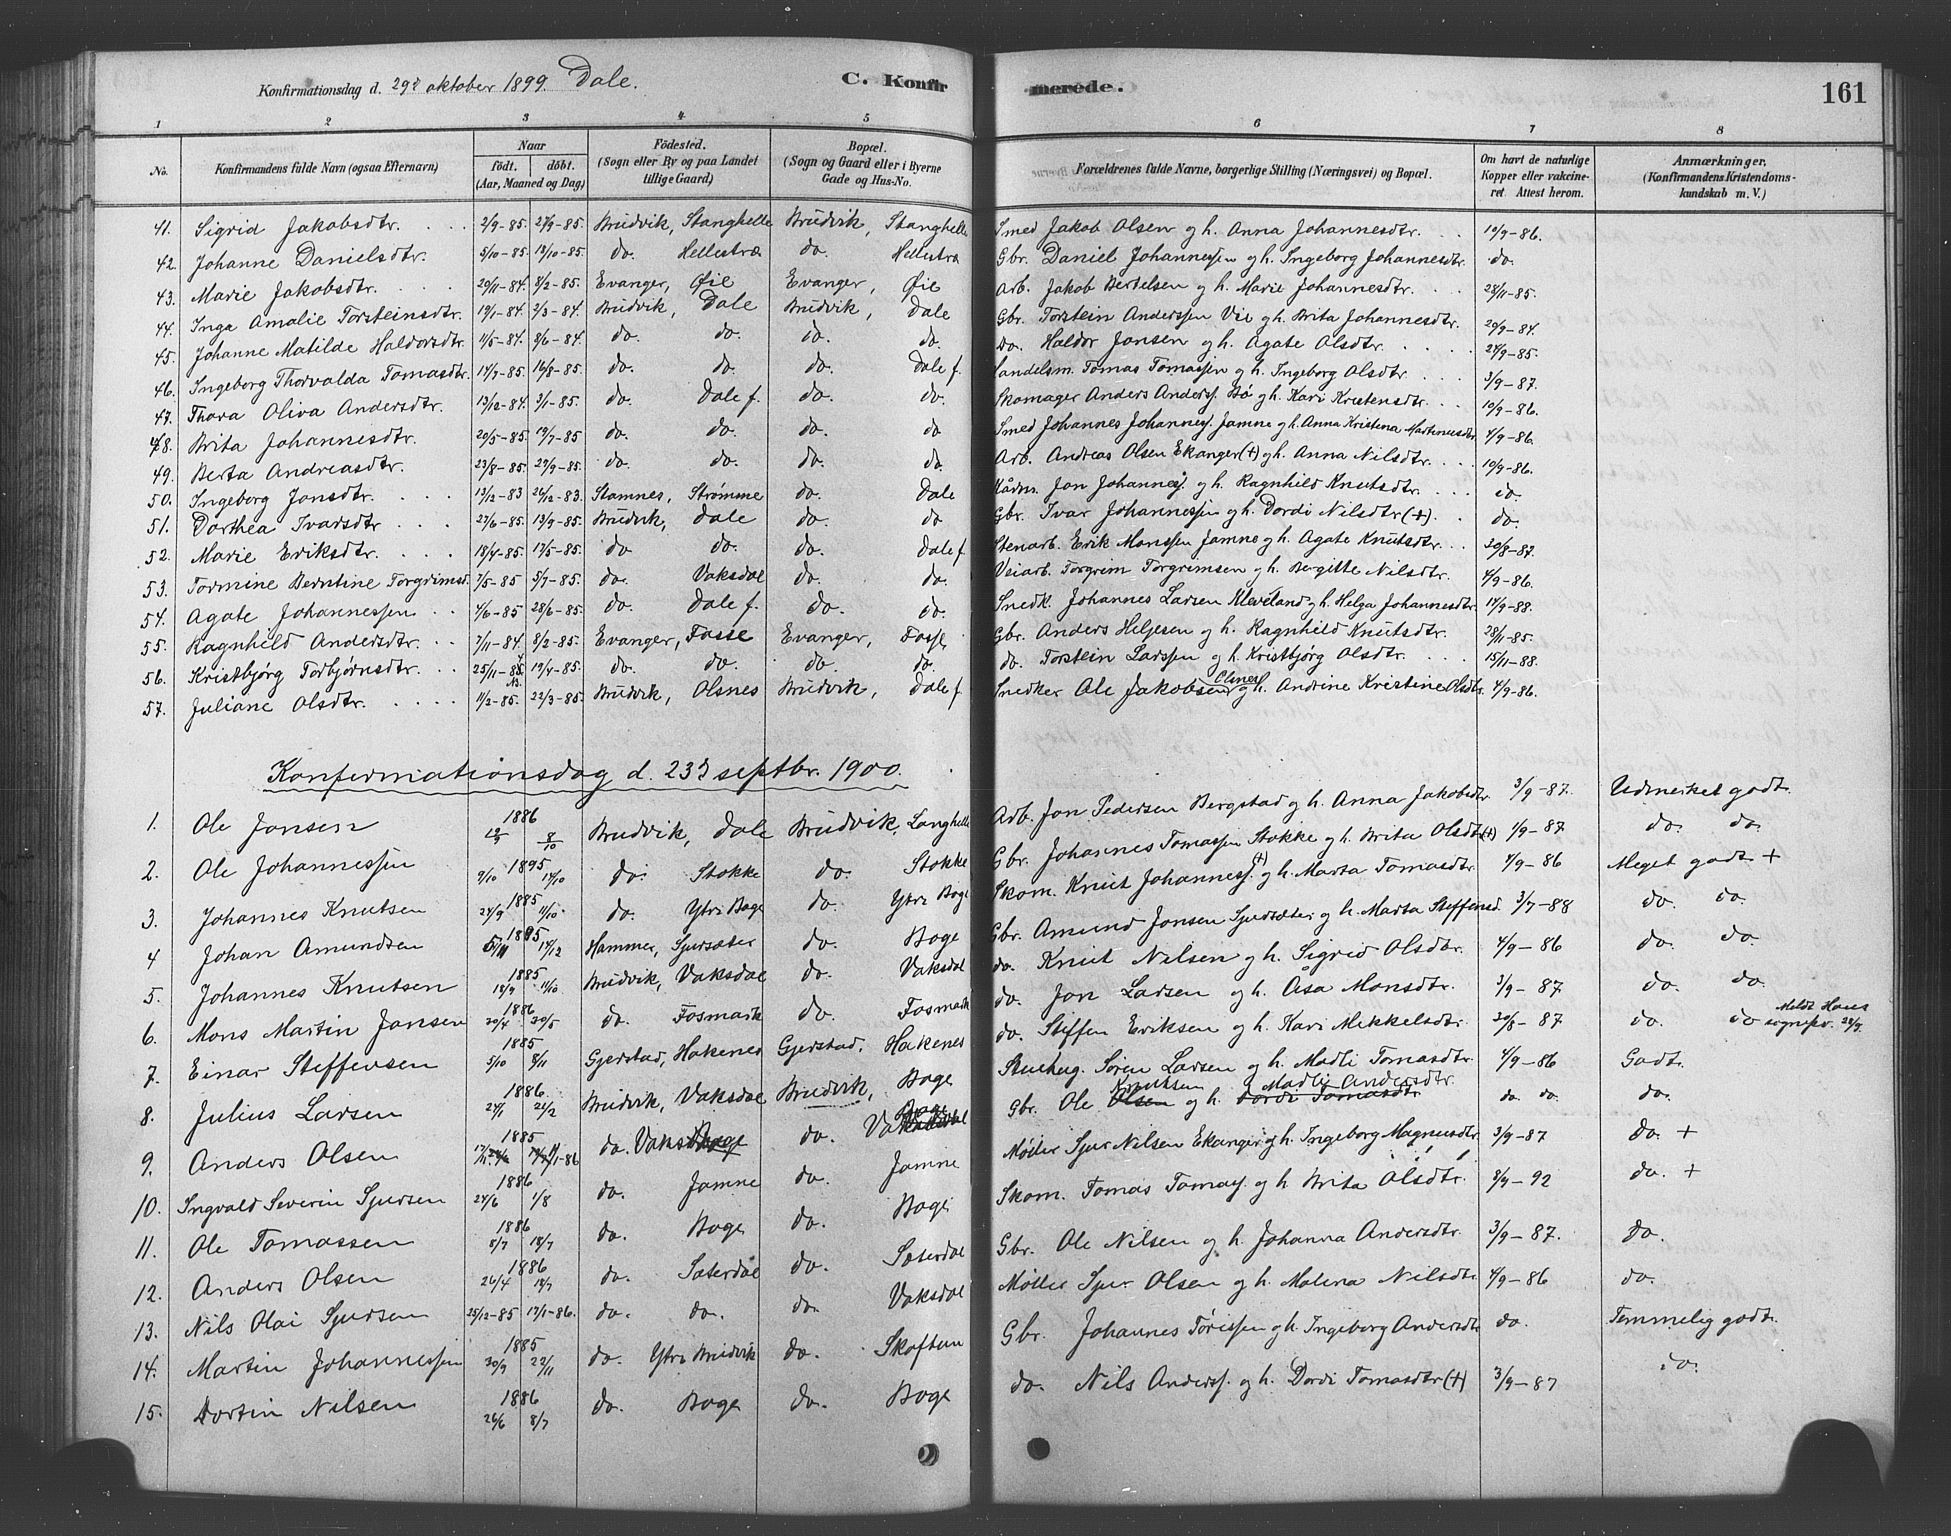 Konfirmationsdag d. 29d oktober 1899. Dale. C. Konfir merede. 161
1 2 3 4 5 6 7 8
No. Konfirmandens fulde Navn (ogsaa Efternavn) Naar født. døbt. (Aar, Maaned og Dag) Fødested. (Sogn eller By og paa Landet tillige Gaard) Bopæl. (Sogn og Gaard eller i Byerne Gade og Hus-No. Forældrenes fulde Navne, borgerlige Stilling (Næringsvei) og Bopæl. Om havt de naturlige Kopper eller vakcineret. Attest herom. Anmærkninger. (Konfirmandens Kristendomskundskab m. V.)
41. Sigrid Jakobsdtr. 2/9-85. 27/9-85. Brudvik, Stanghelle Brudvik, Stanghelle Smed Jakob Olsen og h. Anna Johannesdtr. 10/9-86.
42. Johanne Danielsdtr. 5/10-85. 19/10-85. do. Hellestræ do. Hellestræ Gbr. Daniel Johannessen og h. Ingeborg Johannesdtr. do.
43. Marie Jakobsdtr. 20/11-84. 8/2-85. Evanger, Øie Evanger, Øie Arb. Jakob Bertelsen og h. Marie Johannesdtr. 28/11-85.
44. Inga Amalie Torsteinsdtr. 19/1-84. 2/3-84. Brudvik, Dale Brudvik, Dale Gbr. Torstein Anderssen Vie og h. Brita Johannesdtr. 29/9-84.
45. Johanne Matilde Haldorsdtr. 11/5-84. 8/6-84. do. do. do. do. do. Haldor Jonsen og h. Agate Olsdtr. 27/9-85.
46. Ingeborg Thorvalda Tomasdtr. 14/7-85. 16/8-85. do. do. do. Dale f. Landelsm. Tomas Tomassen og h. Ingeborg Olsdtr. 3/9-87.
47. Thora Oliva Andersdtr. 13/12-84. 3/1-85. do. Dale f. do. do. Skomager Anders Anderss. Bø og h. Kari Kristensdtr. 10/9-86.
48. Brita Johannesdtr. 20/5-85. 19/7-85 do. do. do. do Smed Johannes Johanness. Jamne og h. Anna Kristina Martinusdtr 4/9-86.
49. Berta Andreasdtr. 23/8-85. 27/9-85. do. do. do. do. Arb. Andreas Olsen Ekanger (+) og h. Anna Nilsdtr. 10/9-86.
50. Ingeborg Jonsdtr. 19/12-83 26/12-83. Stamnes, Strømme do. Dale Jon Johanness. og h. Ragnhild Knutsdtr. do.
51. Dorthea Ivarsdtr 27/6-85. 13/9-85. Brudvik, Dale do. do Gbr. Ivar Johannessen og h. Dordi Nilsdtr (+). do.
52. Marie Eriksdtr. 18/4-85. 17/5-85. do do. do. Dale f Stenarb. Erik Monssen Jamne og h. Agate Knutsdtr. 30/8-87.
53. Tormine Berntine Torgrimsd. 7/5-85 5/7-85. do. Vaksdal do. do. Veiarb. Torgrim Torgrimsen og h. Bergitte Nilsdtr. 4/9-86.
54. Agate Johannessen 4/6-85 28/6-85. do. Dale f. do. do. Snedk. Johannes Larsen Kleveland og h. Helga Johannesdtr. 14/9-88.
55. Ragnhild Andersdtr. 7/11-84. 8/2-85. Evanger, Fosse Evanger, Fosse Gbr. Anders Heljesen og h. Ragnhild Knutsdtr. 28/11-85.
56. Kristbjørg Torbjørnsdtr. 25/11-84. 19/4-85. do. do. do. do. do. Torstein Larssen og h. Kristbjørg Olsdtr. 15/11-88.
57. Juliane Olsdtr. 11/2-85. 22/3-85. Brudvik, Olsnes Brudvik, Dale f Snedker Ole Jakobsen Olsnes og h. Andrine Kristine Olsdtr. 4/9-86.
Konfirmationsdag d. 23d septbr. 1900.
1. Ole Jonsen 1886 8/10 Brudvik, Dale Brudvik, Langhelle Arb. Jon Pedersen Bergstad og h. Anna Jakobsdtr 3/9-87. Udmerket godt.
2. Ole Johannessen 1895 9/10 17/10 do. Stokke do. Stokke Gbr. Johannes Tomassen Stokke og h. Brita Olsdtr (+) 1/9-87 do. do.
3. Johannes Knutsen 1885 24/9 11/10. do. Ytre Boge do. Ytre Boge Skom. Knut Johanness. (+) og h. Marta Tomasdtr. 4/9-86 Meget godt +
4 Johan Amundsen 1885 14/12 Hammer, Sjursæter do. Boge Gbr. Amund Jonsen Sjursæter og h. Marta Steffensd. 3/7-88 do. do.
5. Johannes Knutsen 1885 18/9 11/10 Brudvik, Vaksdal do. Vaksdal do. Knut Nilsen og h. Sigrid Olsdtr. 4/9-86 do. do.
6. Mons Martin Jonsen 1886 20/4 30/5 do. Fosmark do. Fosmark do. Jon Larsen og h. Åsa Monsdtr. 3/9-87 do. do
7. Einar Steffensen 1885 5/10 8/11 Gjerstad, Hakenes Gjerstad, Hakenes do. Steffen Eriksen og h. Kari Mikkelsdtr. 20/8-87 do. do Meldt Haus sognepr. 28/9.
8. Julius Larsen 1886 24/1 21/2 Brudvik, Vaksdal Brudvik, Boge Stenhug. Søren Larsen og h. Madli Tomasdtr. 4/9-86 Godt.
9. Anders Olsen 1885 1-86 do. Vaksdal Boge do. Vaksdal Boge Gbr. Ole Olsen Knutsen og h. Dordi Tomasdtr Madli Andersdtr. do. do. do.
10. Ingvald Severin Sjursen 1886 24/6 1/8 do. Jamne do. Jamne Møller Sjur Nilsen Ekanger og h. Ingeborg Magnusdtr. 3/9-87 do. +
11. Ole Tomassen 1886 8/7 18/7 do. Boge do. Boge Skom. Tomas Tomass. og h. Brita Olsdtr. 8/9-92 do. +
12. Anders Olsen 1886 26/4 18/7 do. Sæterdal do. Sæterdal Gbr. Ole Nilsen og h. Johanna Andersdtr. 3/9-87. do.
13. Nils Olai Sjursen 25/12-85 17/1-86. do. do. do. Vaksdal Møller Sjur Olsen og h. Malena Nilsdtr. 4/9-86 do.
14. Martin Johannessen 1885 30/9 22/11 do. Ytre Brudvik do. Skoftun Gbr. Johannes Tørissen og h. Ingeborg Andersdtr do. Temmelig godt.
15. Dortin Nilsen 1886 26/6 8/7 do. Boge do. Boge do. Nils Anderss. og h. Dordi Tomasdtr (+) 3/9-87 do.